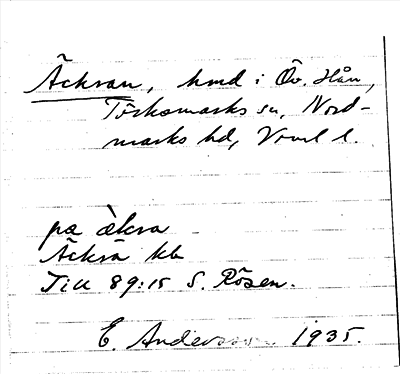 Äckran, hmd i Öv. Hån,
Töcksmarks sn, Nord-
marks hd, Vrml l.
pa èkra
Äckrä kb
Till 89:15 S. Rösen.
E. Andersson 1935.